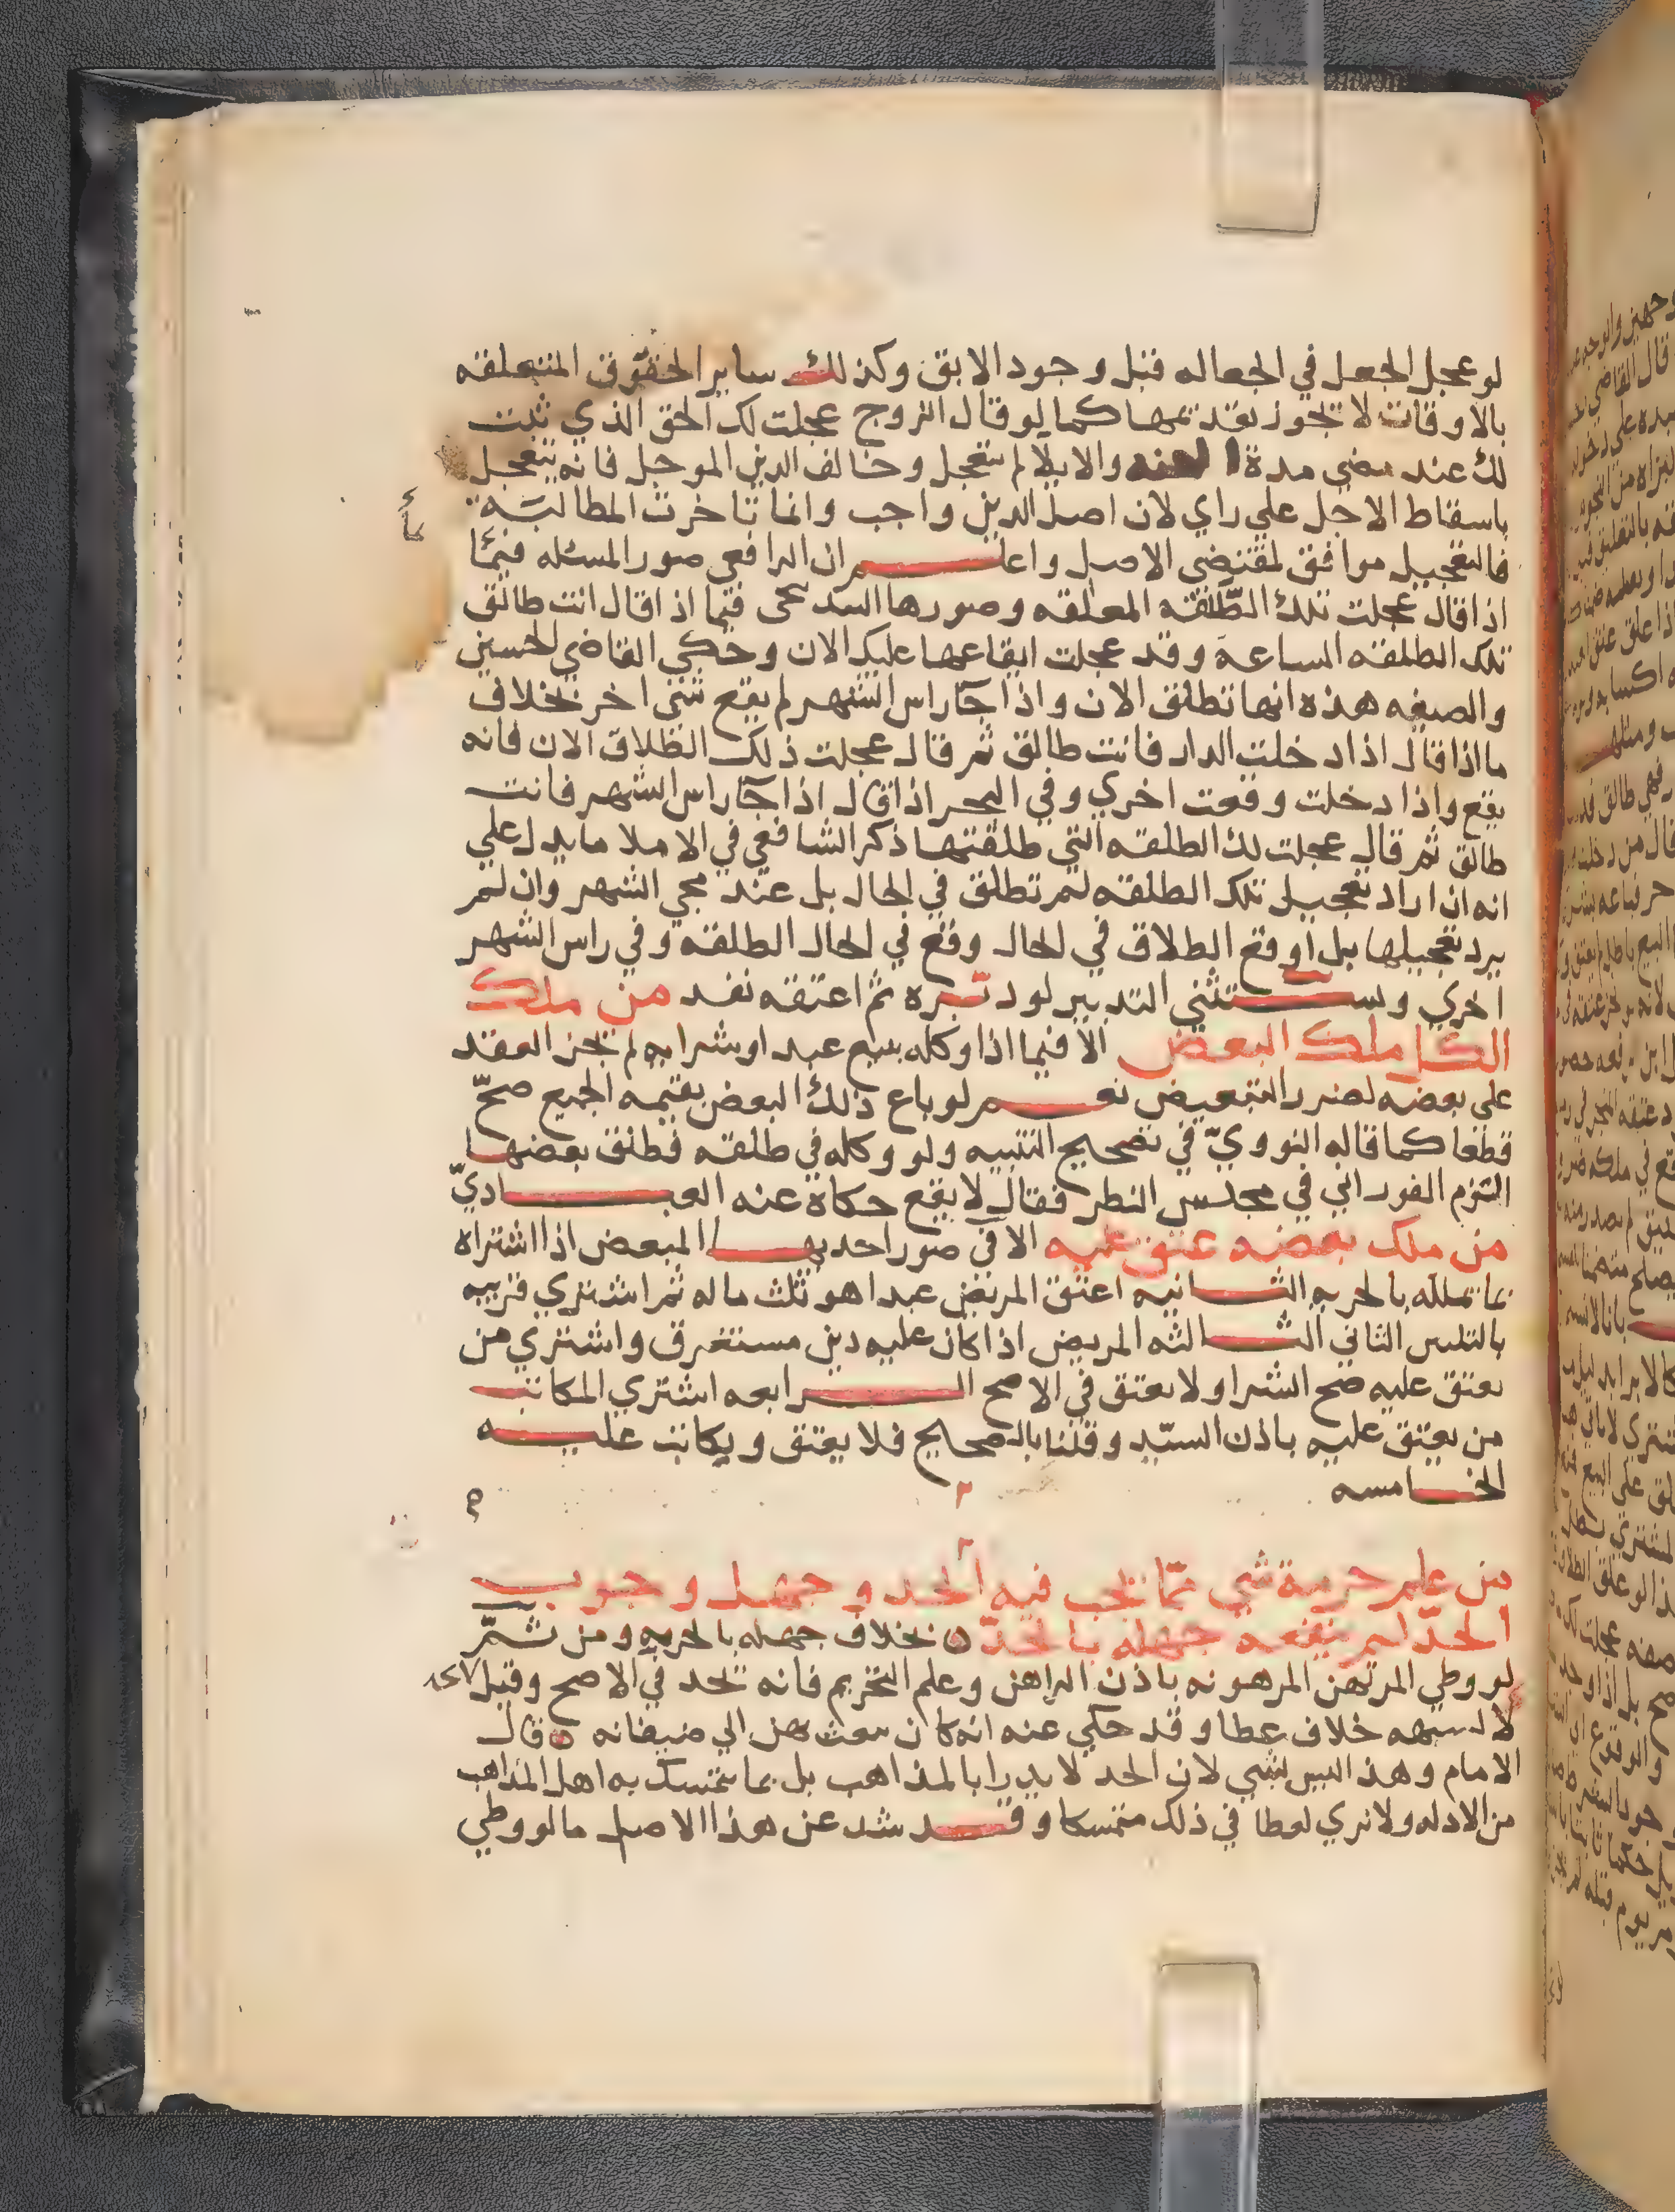 لو عجل الجعل في الجعاله قبل وجود الابق وكذلك ساير الحقوق المتعلقه
بالاوقات لا يجوز تقديمها كما لو قال الزوج عجلت لك الحق الذي ثبت
لك عند مضي مدة والايلا لم يتعجل وخالف الدين الموجل فانه يتعجل
باسقاط الاجل علي راي لان اصل الدين واجب وانما تاخرت المطالبه
فالتعجيل موافق لمقتضي الاصل واعلم ان الرافعي صور المسئله فيما
اذا قال عجلت تلك الطلقه المعلقه وصورها السرخسي فيما اذا قال انت طالق
تلك الطلقه الساعة وقد عجلت ايقاعها عليك الان وحكي القاضي الحسين
والصيغه هذه انها تطلق الان واذا جآ راس الشهر لم يقع شي اخر بخلاف
ما اذا قال اذا دخلت الدار فانت طالق ثم قال عجلت ذلك الطلاق الان فانه
يقع واذا دخلت وقعت اخري وفي البحر اذا قال اذا جآ راس الشهر فانت
طالق ثم قال عجلت لك الطلقه التي طلقتها ذكر الشافعي في الاملا ما يدل علي
انه ان اراد تعجيل تلك الطلقه لم تطلق في الحال بل عند مجي الشهر وان لم
يرد تعجيلها بل اوقع الطلاق في الحال وقع في الحال الطلقه وفي راس الشهر
اخري ويستثني التدبير لو دبره ثم اعتقه نفد من ملك
الكل ملك البعض الا فيما اذا وكله ببيع عبد او شرايه لم يجز العقد
علي بعضه لضرر التبعيض نعم لو باع ذلك البعض بقيمه الجميع صحّ
قطعا كما قاله النوويّ في تصحيح التنبيه ولو وكله في طلقه فطلق بعضها
التزم الفوراني في مجلس النظر فقال لا يقع حكاه عنه العباديّ
من ملك بعضه عتق عليه الا في صور احديها المبعض اذا اشتراه
بما تملكه بالحريه الثانيه اعتق المريض عبدا هو ثلث ماله ثم اشتري قريبه
بالثلثين الثاني الثالثه المريض اذا كان عليه دين مستغرق واشتري من
يعتق عليه صح الشرا ولا يعتق في الاصح الرابعه اشتري المكاتب
من يعتق عليه باذن السيّد وقلنا بالصحيح فلا يعتق ويكاتب عليه
الخامسه
من علم حرمة شي ممّا يجب فيه الحد وجهل وجوب
الحدّ لم ينفعه جهله بالحدّ بخلاف جهله بالحرمه ومن ثمّ
لو وطي المرتهن المرهونه باذن الراهن وعلم التحريم فانه يحد في الاصح وقيل
لا لشبهه خلاف عطا وقد حكي عنه انه كان يبعث بهن الي ضيفانه قال
الامام وهذا ليس بشي لان الحد لا يدرا بالمذاهب بل بما يتمسك به اهل المذاهب
من الادله ولا نري لعطا في ذلك متمسكا وقد شد عن هذا الاصل ما لو وطي